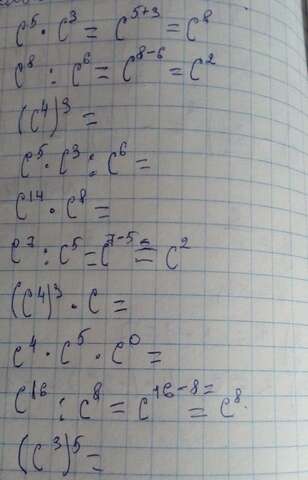 c⁵ · c³ = c⁵⁺³ = c⁸
c⁸ : c⁶ = c⁸⁻⁶ = c²
(c⁴)³ =
c⁵ · c³ : c⁶ =
c¹⁴ · c⁸ =
c⁷ : c⁵ = c⁷⁻⁵ = c²
(c⁴)³ · c =
c⁴ · c⁵ · c⁰ =
c¹⁶ : c⁸ = c¹⁶⁻⁸⁼ = c⁸.
(c³)⁵ =